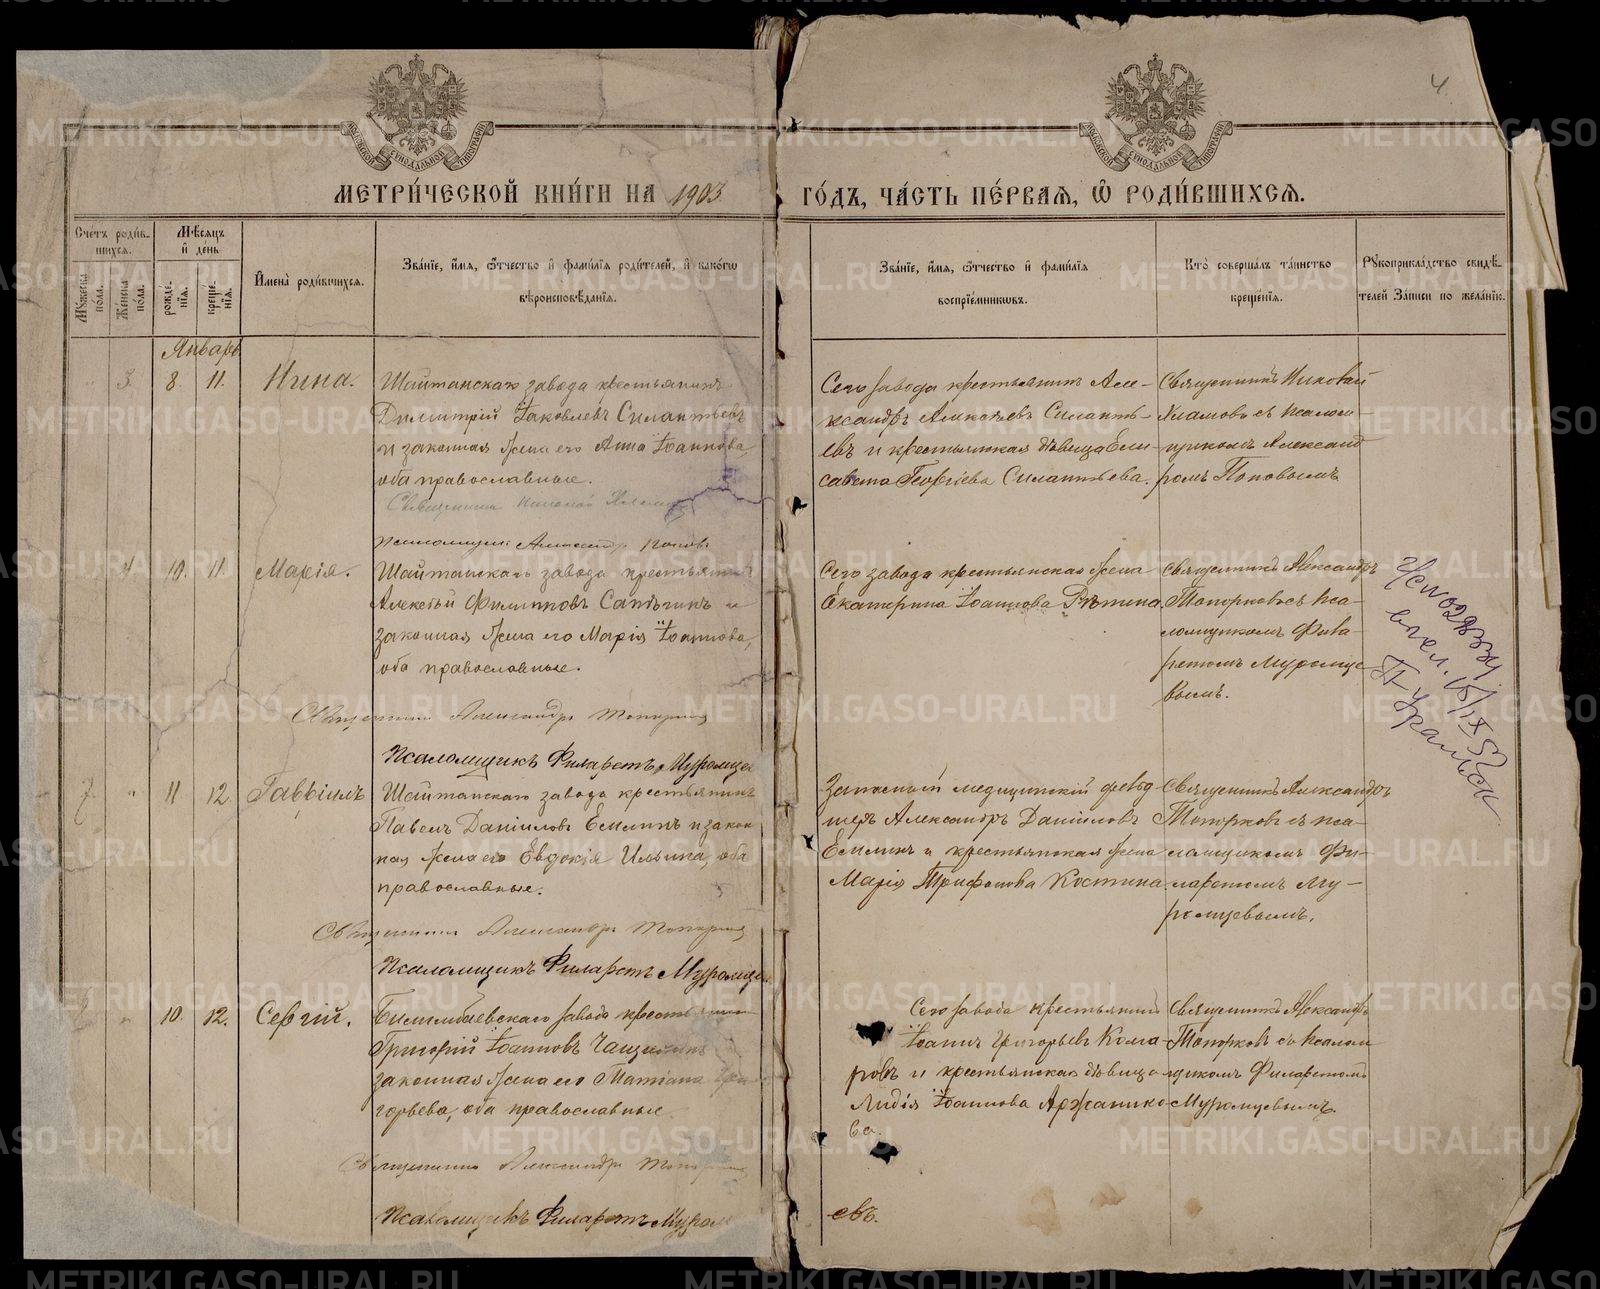 4
МЕТРИ́ЧЕСКОЙ КНИ́ГИ НА 1903 ГО́ДЪ, ЧА́СТЬ ПЕ́РВАЯ, Ѡ РОДИ́ВШИХСЯ.
Сче́тъ роди́в-
шихся.
Мужеска по́ла.
Же́нска по́ла.
Мѣ́сяцъ
и де́нь
рожде́нїя.
креще́нїя.
И҆мена̀ роди́вшихся.
Зва́нїе, и҆́мя, ѻ҆́тчество и҆ фами́лїя роди́телей, и҆ како́гѡ
вѣроисповѣ́данїя.
Зва́нїе, и҆́мя, ѻ҆́тчество и҆ фами́лїя
воспрїе́мниковъ.
Кто̀ соверша́лъ та́инство
креще́нїя.
Рукоприкла́дство свидѣ́-
телей за́писи по жела́нїю.
Январь
3. 8. 11. Нина.
Шайтанскаго завода крестьянинъ
Димитрій Іаковлевъ Силантьевъ
и законная жена его Анна Іоаннова,
оба православные.
Священникъ Николай
Псаломщикъ Александръ Поповъ
Сего завода крестьянинъ Але-
ксандръ Алексѣевъ Силанть-
евъ и крестьянская дѣвица Ели-
савета Георгіева Силантьева.
Священникъ Николай
съ псалом-
щикомъ Александ
ромъ Поповымъ
4 10. 11. Марія.
Шайтанскаго завода крестьянинъ
Алексѣй Филипповъ Сапѣгинъ и
законная жена его Марія Іоаннова,
оба православные.
Священникъ Александръ Топорковъ
Псаломщикъ Филаретъ Муромцев
Сего завода крестьянская жена
Екатерина Іоаннова Рѣпина.
Священникъ Александръ
Топорковъ съ пса-
ломщикомъ Фила-
ретомъ Муромце
вымъ.
2. " 11 12. Гавріилъ
Шайтанскаго завода крестьянинъ
Павелъ Даніиловъ Емлинъ и закон
ная жена его Евдокія Ильина, оба
православные.
Священникъ Александръ Топорков
Псаломщикъ Филаретъ Муромцев
Запасный медицинскій фельд
шеръ Александръ Даніиловъ
Емлинъ и крестьянская жена
Марія Трифонова Костина.
Священникъ Александръ
Топорковъ съ пса-
ломщикомъ Фи-
ларетомъ Му-
ромцевымъ.
" 10. 12. Сергій.
Билимбаевскаго завода крестьянинъ
Григорій Іоанновъ
законная жена его Татіана Гри-
горьева, оба православные.
Священникъ Александръ Топорков
Псаломщикъ Филаретъ Муромц
Сего завода крестьянинъ
Іоаннъ Григорьевъ Кома-
ровъ и крестьянская дѣвица
Лидія Іоаннова Аржанико-
ва.
Священникъ Александръ
Топорковъ съ псалом
щикомъ Филаретомъ
Муромцевымъ.
евъ.
METRIKI.GASO-URAL.RU